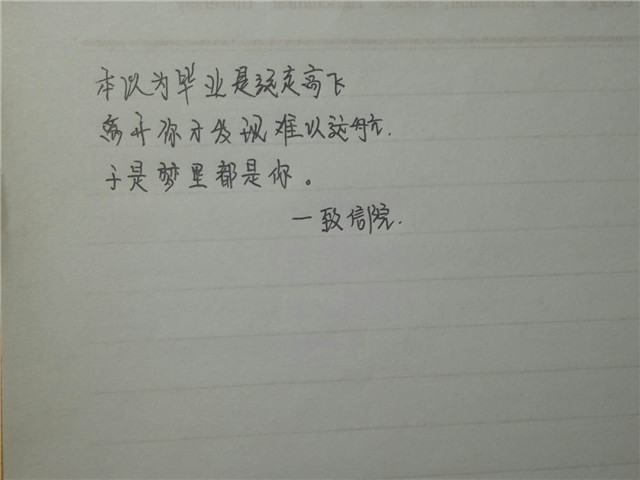 本以为毕业是远走高飞
离开你才发现难以远航.
于是梦里都是你。
一致信院.